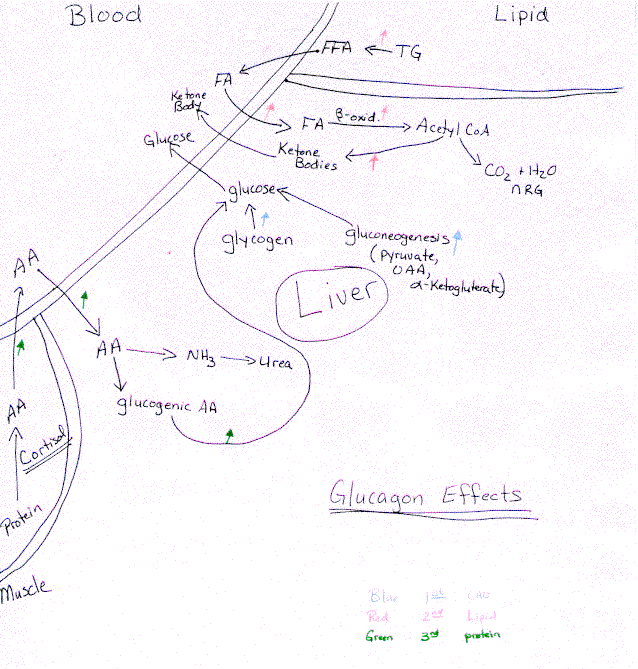 Blood
Lipid
FFA
TG
FA
Ketone
Body
FA
β-oxid.
Acetyl CoA
Glucose
Ketone
Bodies
CO2 + H2O
nRG
glucose
glycogen
gluconeogenesis
(pyruvate,
OAA,
α-Ketogluterate)
Liver
AA
AA
NH3
Urea
glucogenic AA
AA
Cortisol
Protein
Muscle
Glucagon Effects
Blue 1st CHO
Red 2nd Lipid
Green 3rd protein